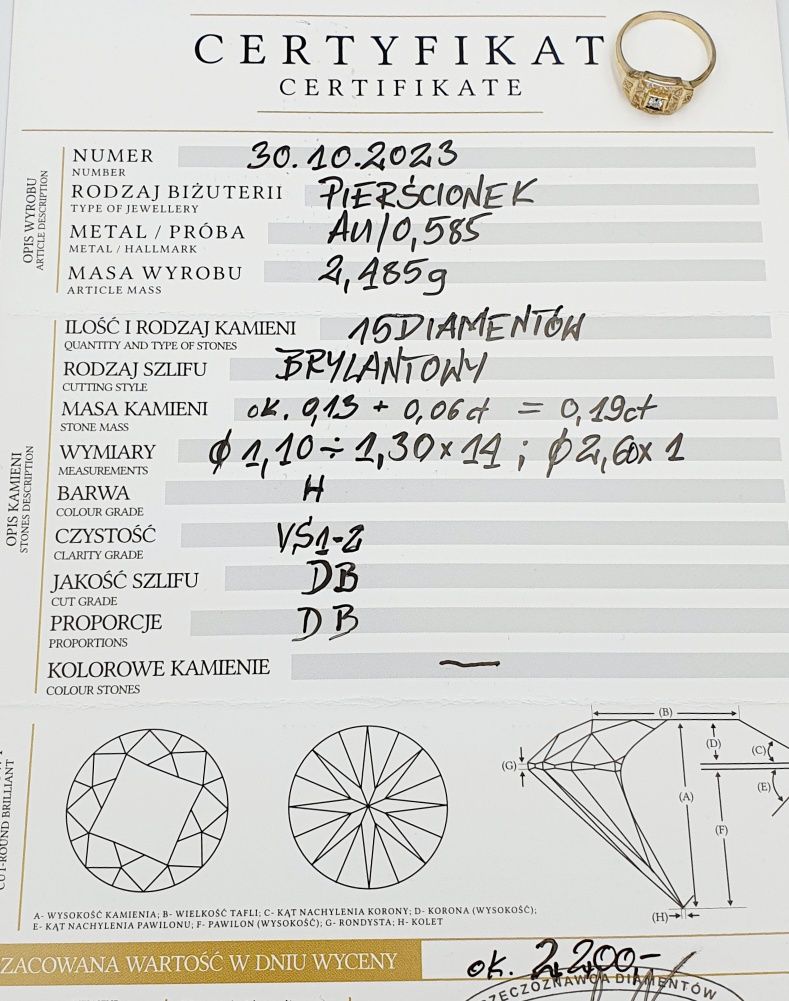 CERTYFIKAT
CERTIFICATE
OPIS WYROBU
ARTICLE DESCRIPTION
NUMER 30.10.2023
NUMBER
RODZAJ BIŻUTERII PIERŚCIONEK
TYPE OF JEWELLERY
METAL / PRÓBA Au/0,585
METAL / HALLMARK
MASA WYROBU 2,485g
ARTICLE MASS
OPIS KAMIENI
STONES DESCRIPTION
ILOŚĆ I RODZAJ KAMIENI 15 DIAMENTÓW
QUANTITY AND TYPE OF STONES
RODZAJ SZLIFU BRYLANTOWY
CUTTING STYLE
MASA KAMIENI ok. 0,13 + 0,06ct = 0,19ct
STONE MASS
WYMIARY ϕ 1,10 ÷ 1,30 x 14 ; ϕ 2,60 x 1
MEASUREMENTS
BARWA H
COLOUR GRADE
CZYSTOŚĆ VS1-2
CLARITY GRADE
JAKOŚĆ SZLIFU DB
CUT GRADE
PROPORCJE DB
PROPORTIONS
KOLOROWE KAMIENIE —
COLOUR STONES
CUT-ROUND BRILLIANT
(B)
(D)
(C)
(G)
(E)
(A)
(F)
(H)
A- WYSOKOŚĆ KAMIENIA; B- WIELKOŚĆ TAFLI; C- KĄT NACHYLENIA KORONY; D- KORONA (WYSOKOŚĆ);
E- KĄT NACHYLENIA PAWILONU; F- PAWILON (WYSOKOŚĆ); G- RONDYSTA; H- KOLET
ZACOWANA WARTOŚĆ W DNIU WYCENY ok. 2.200,-
RZECZOZNAWCA DIAMENTÓW